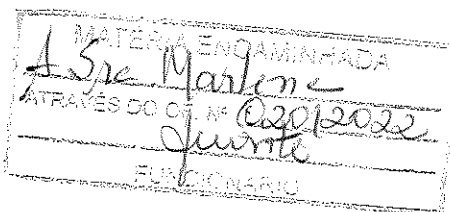 MATÉRIA ENCAMINHADA
A Sra Marlene
ATRAVÉS DO OF. Nº 020/2022
FUNCIONÁRIO